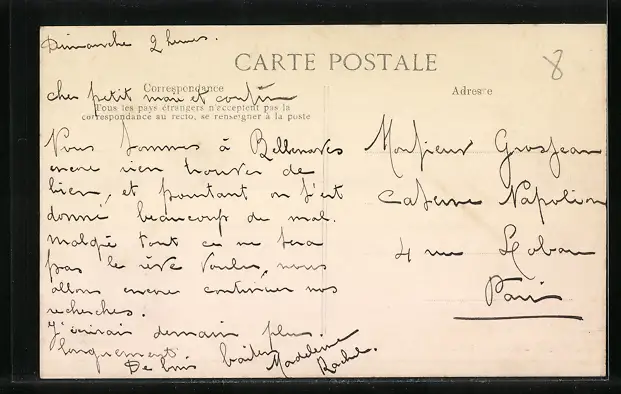 Dimanche 2 heures.
CARTE POSTALE
8
Correspondance
Adresse
cher petit mari et cousin
Tous les pays étrangers n'acceptent pas la
correspondance au recto, se renseigner à la poste
Nous sommes à Bellenaves
encore rien trouver de
bien, et pourtant on s'est
donné beaucoup de mal.
malgré tout ce ne sera
pas le rêve voulu, nous
allons encore continuer nos
recherches.
J'écrirais demain plus
longuement.
De bons baisers Madeleine
Rachel.
Monsieur Grosjean
Caserne Napoléon
4 rue Lobau
Paris